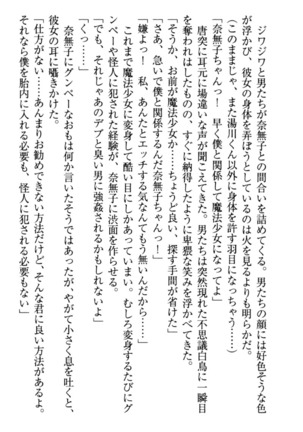 ジワジワと男たちが奈無子との間合いを詰めてくる。男たちの顔には好色そうな色
が浮かび、彼女の身体を弄ぼうとしているのは火を見るよりも明らかだ。
（このままじゃ、また湯川くん以外に身体を許す羽目になっちゃう……）
「奈無子ちゃんっ！　早く僕と関係して魔法少女になってよ」
唐突に耳元に場違いな声が聞こえてきた。男たちは突然現れた不思議白鳥に一瞬目
を奪われはしたものの、すぐに納得したように卑猥な笑みを浮かべてきた。
「そうか、お前が魔法少女か……ちょうど良い、探す手間が省けた」
「さあ、急いで僕と関係するんだ奈無子ちゃんっ！」
「嫌よっ！　私、あんたとエッチする気なんてもう無いんだから……」
これまで魔法少女に変身して酷い目にしかあっていない。むしろ変身するたびにグ
ンペーや怪人に犯された経験が、奈無子に渋面を作らせる。
「でも、それじゃあのデブと臭い男に強姦されるかもしれないよ」
「くっ……」
奈無子にグンペーなおもは何か言いたそうではあったが、やがて小さく息を吐くと、
彼女の耳に囁きかけた。
「仕方がない……あんまりお勧めできない方法だけど、そんな君に良い方法があるよ。
それなら僕を胎内に入れる必要も、怪人に犯される必要もない」